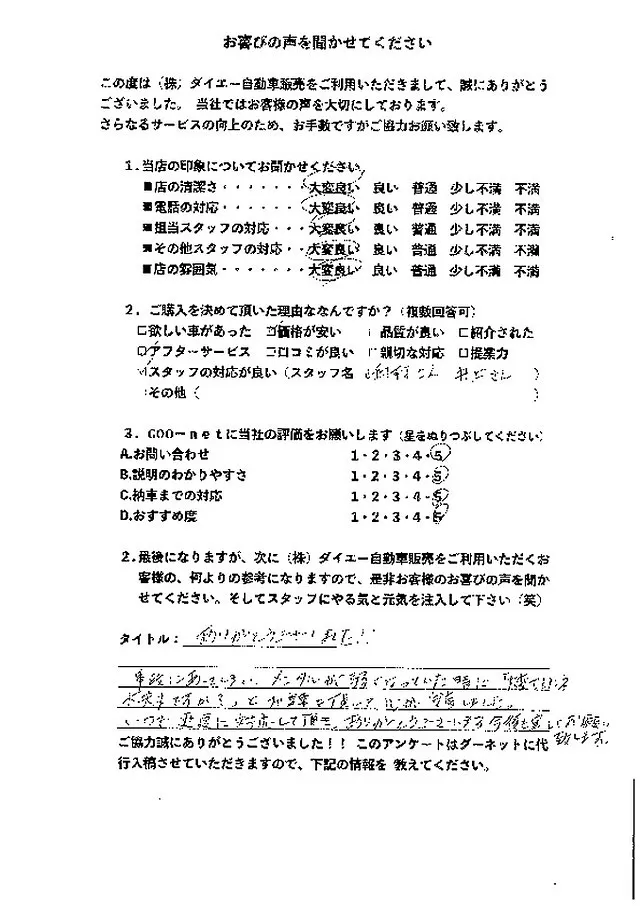 お喜びの声を聞かせてください
この度は（株）ダイエー自動車販売をご利用いただきまして、誠にありがとう
ございました。 当社ではお客様の声を大切にしております。
さらなるサービスの向上のため、お手数ですがご協力お願い致します。
1.当店の印象についてお聞かせください
■店の清潔さ・・・・・・・大変良い 良い 普通 少し不満 不満
■電話の対応・・・・・・・大変良い 良い 普通 少し不満 不満
■担当スタッフの対応・・・大変良い 良い 普通 少し不満 不満
■その他スタッフの対応・・大変良い 良い 普通 少し不満 不満
■店の雰囲気・・・・・・・大変良い 良い 普通 少し不満 不満
2. ご購入を決めて頂いた理由ななんですか？（複数回答可）
□欲しい車があった □価格が安い □品質が良い □紹介された
□アフターサービス □口コミが良い □親切な対応 □提案力
□スタッフの対応が良い（スタッフ名 さん さん ）
□その他（ ）
3. GOO－netに当社の評価をお願いします（星をぬりつぶしてください）
A.お問い合わせ 1・2・3・4・5
B.説明のわかりやすさ 1・2・3・4・5
C.納車までの対応 1・2・3・4・5
D.おすすめ度 1・2・3・4・5
2.最後になりますが、次に（株）ダイエー自動車販売をご利用いただくお
客様の、何よりの参考になりますので、是非お客様のお喜びの声を聞か
せてください。そしてスタッフにやる気と元気を注入して下さい（笑）
タイトル： ありがとうございました!!
事故にあってしまい、メンタルが弱くなっていた時に
大丈夫ですか？」と
いつも 対応して頂き、ありがとうございます 何卒 お願い
致します。
ご協力誠にありがとうございました！！ このアンケートはグーネットに代
行入稿させていただきますので、下記の情報を 教えてください。